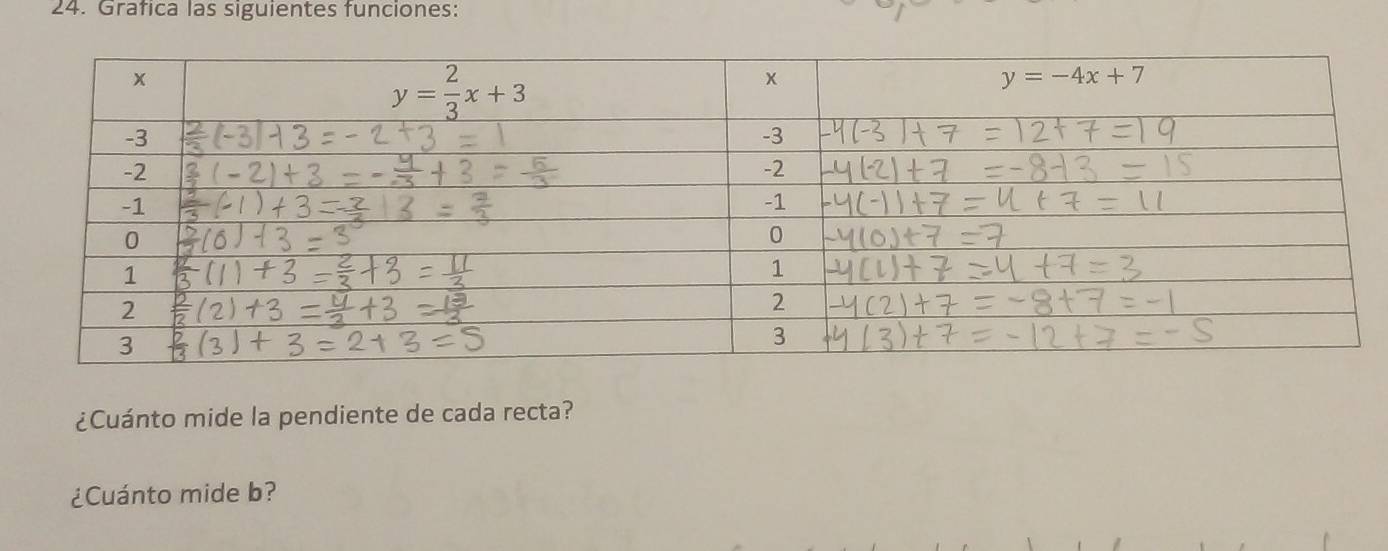 24. Grafica las siguientes funciones:
x y = 2/3 x + 3 x y = −4x + 7
-3 2/3(-3)+3=-2+3=1 -3 -4(-3)+7=12+7=19
-2 2/3(-2)+3=-4/3+3=5/3 -2 -4(-2)+7=-8+3=15
-1 2/3(-1)+3=-2/3+3=7/3 -1 -4(-1)+7=4+7=11
0 2/3(0)+3=3 0 -4(0)+7=7
1 2/3(1)+3=2/3+3=11/3 1 -4(1)+7=-4+7=3
2 2/3(2)+3=4/3+3=13/3 2 -4(2)+7=-8+7=-1
3 2/3(3)+3=2+3=5 3 -4(3)+7=-12+7=-5
¿Cuánto mide la pendiente de cada recta?
¿Cuánto mide b?